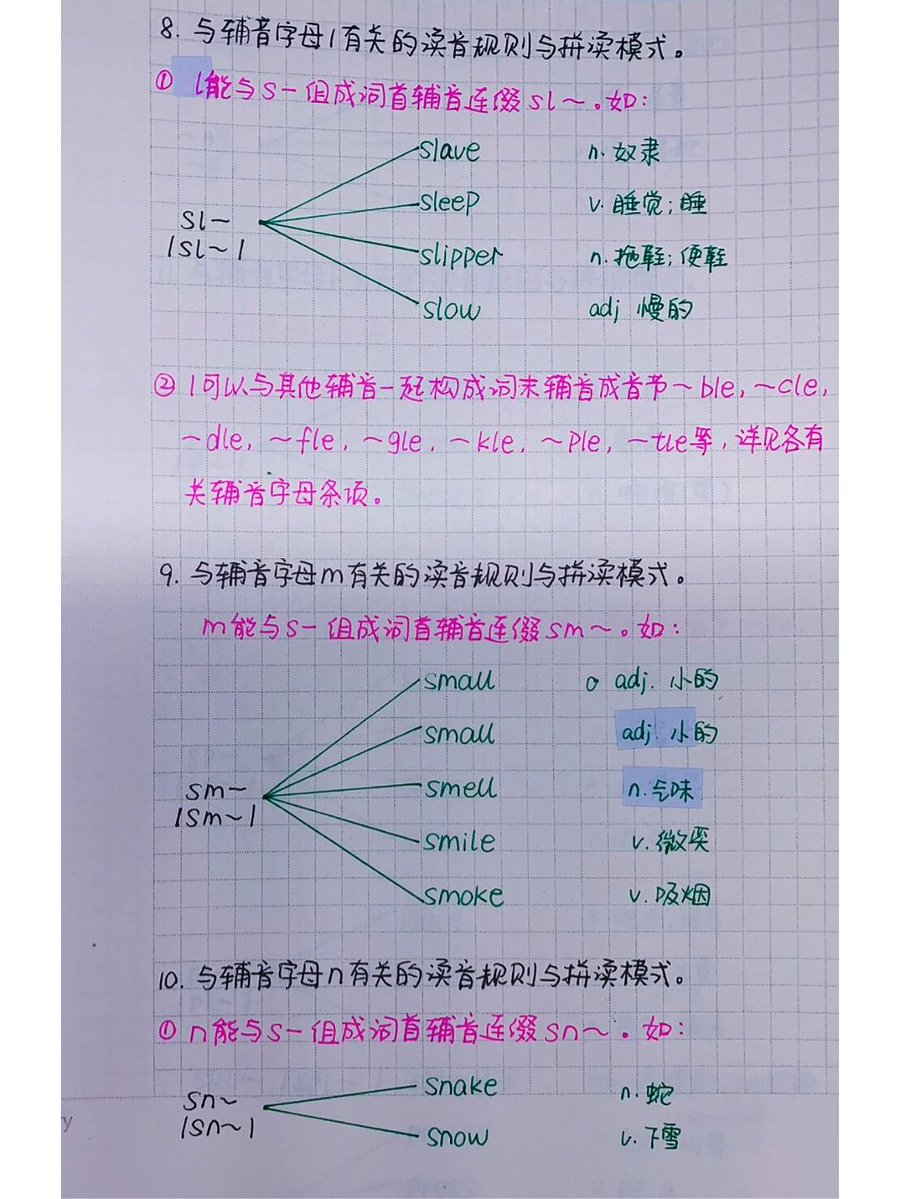 8. 与辅音字母l有关的读音规则与拼读模式。
① l能与s一组成词首辅音连缀sl~。如:
slave n. 奴隶
sleep v. 睡觉; 睡
sl~
/sl~/
slipper n. 拖鞋; 便鞋
slow adj 慢的
② l可以与其他辅音一起构成词末辅音成音节~ble, ~cle,
~dle, ~fle, ~gle, ~kle, ~ple, ~tle等, 详见各有
关辅音字母条项。
9. 与辅音字母m有关的读音规则与拼读模式。
m能与s一组成词首辅音连缀sm~。如:
small adj. 小的
small adj 小的
sm~
/sm~/
smell n. 气味
smile v. 微笑
smoke v. 吸烟
10. 与辅音字母n有关的读音规则与拼读模式。
① n能与s一组成词首辅音连缀sn~。如:
snake n. 蛇
sn~
/sn~/
snow v. 下雪
y